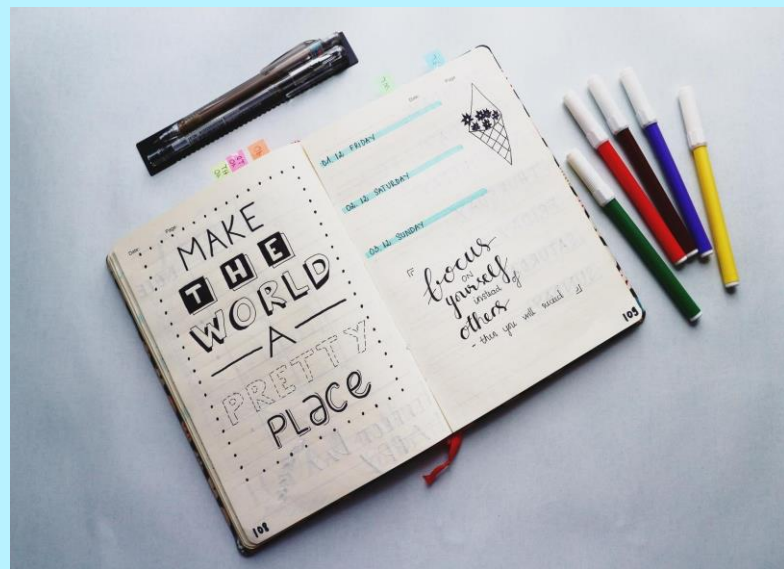 Date:
Page:
MAKE
THE
WORLD
A
PRETTY
PLACE
108
Date:
Page:
01.12 FRIDAY
02.12 SATURDAY
03.12 SUNDAY
focus
ON
yourself
instead of
others
- then you will succeed
105